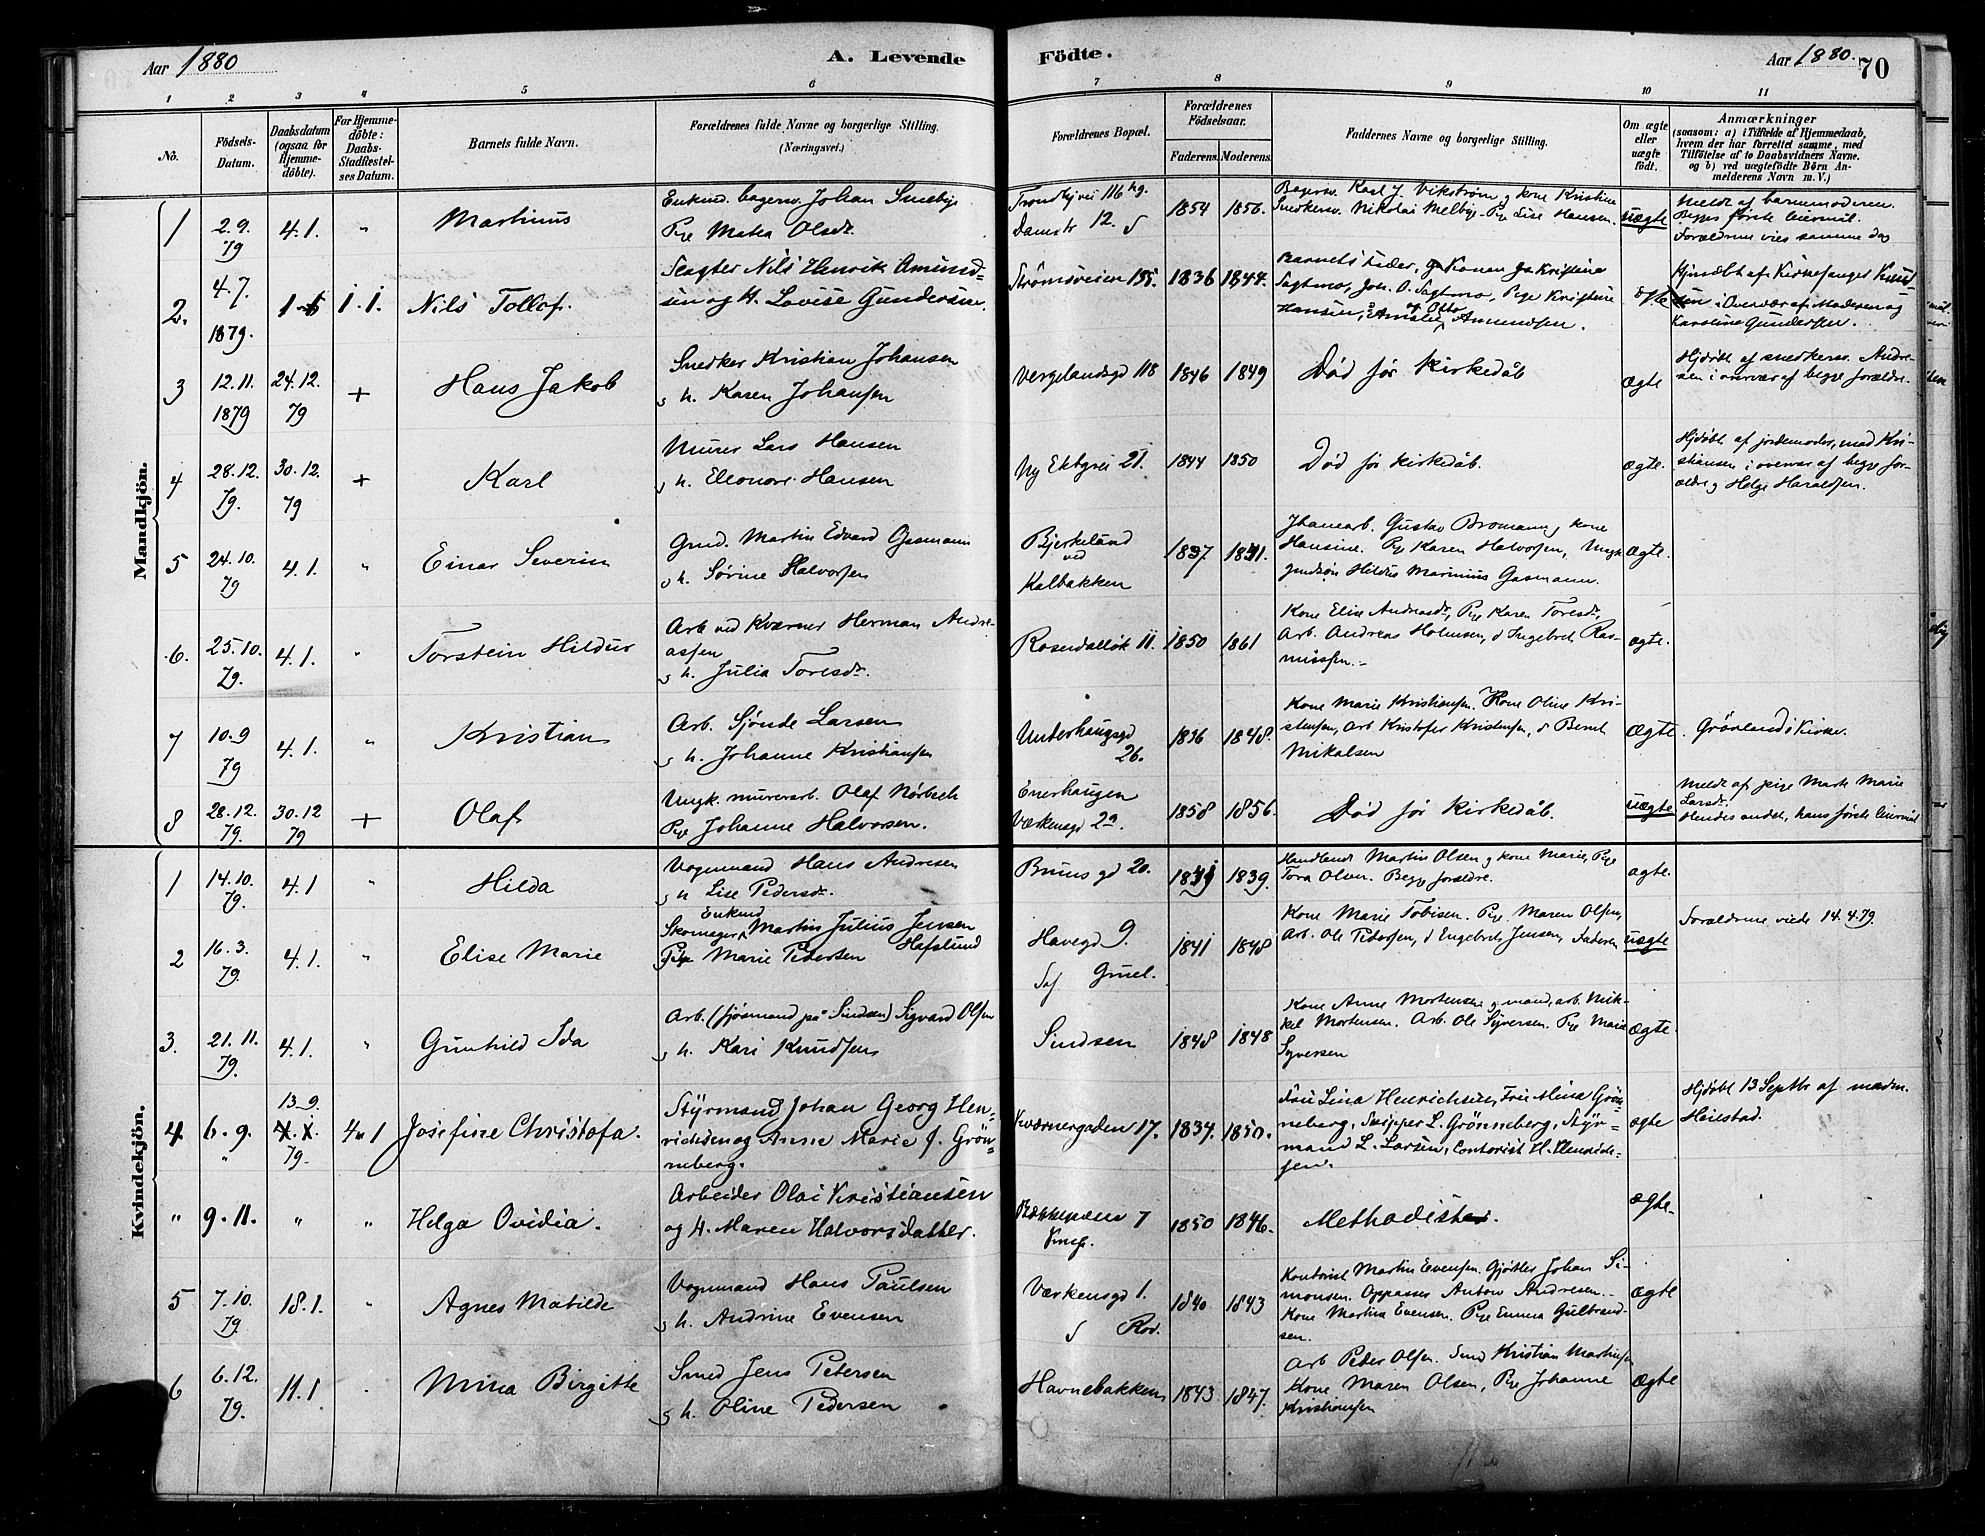 Aar 1880
A. Levende
Födte.
Aar 1880.
70
1 2 3 4 5 6 7 8 9 10 11
No.
Födsels-
Datum.
Daabsdatum
(ogsaa for
Hjemme-
döbte).
For Hjemme-
döbte:
Daabs-
Stadfestel-
ses Datum.
Barnets fulde Navn.
Forældrenes fulde Navne og borgerlige Stilling.
(Næringsvei.)
Forældrenes Bopæl.
Forældrenes
Födselsaar.
Faderens.
Moderens.
Faddernes Navne og borgerlige Stilling.
Om ægte
eller
uægte
födt.
Anmærkninger
(saasom: a) i Tilfælde af Hjemmedaab,
hvem der har forrettet samme, med
Tilföielse af to Daabsvidners Navne.
og b) ved uægtefödte Börn An-
melderens Navn m. V.)
Mandkjön.
1
2.9.
79
4.1.
"
Martinus
Enkmd. bagersv. Johan Smebye
Pige Matea Olsdr.
Trondhjvei 116
Damstr 12.
1854
1856.
Bagersv. Karl J. Vikström, kone Kristine
Snedkersv. Nikolai Melbye. Pige Lise Hansen.
uægte
Meldt af barnemoderen.
Begges første leiermål.
Forældrene vies samme dag
2.
4.7.
1879.
1.1.
Nils Tollof.
Slagter Nils Henrik Amund=
sen og H. Lovise Gundersen.
Strömsveien 135.
1836
1844.
Barnets Fader, Konen Kristine
Sagtmo, Joh. O. Sagtmo, Pige Kristine
Hansen, Amalie og Otto Amundsen.
ægte
Hjmdøbt af Kirkesanger Knud-
sen i Overvær af Moderen og
Karoline Gundersen.
3
12.11.
1879
24.12.
79
+
Hans Jakob
Snedker Kristian Johansen
o h. Karen Johansen
Vergelandsgd 118
1846
1849
Död för kirkedåb
ægte
Hjdöbt af snedkersv. Andre-
sen i overvær af begge forældre.
4
28.12.
79.
30.12.
79
+
Karl
Murer Lars Hansen
o h. Eleonore Hansen
Ny Ekbgvei 21.
1844
1850
Död för kirkedåb.
ægte.
Hjdöbt af jordemoder, mad Kri-
stiansen i overvær af begge for-
ældre og Helge Haraldsen.
5
24.10.
79
4.1.
"
Einar Severin
Grud. Martin Edvard Gasmann
o h. Sörine Halvorsen
Bjerkelund
ved
Kalbakken
1837
1841.
Gustav Bromann, kone
Hansine. Pige Karen Halvorsen, Ungk
Hildus Marinius Gasmann.
ægte.
6.
25.10.
79.
4.1.
"
Torstein Hildur
Arb ved Kværner Herman Andre-
assen
o h. Julia Toresdr.
Rosendallök 11.
1850
1861
Kone Elise Andreasdr, Pige Karen Toresdr,
Arb. Andreas Holmsen, d Ingebret Ras-
mussen.
ægte.
7
10.9
79
4.1.
"
Kristian
Arb. Sjönde Larsen
o h. Johanne Kristiansen
Underhaugsgd
26.
1836
1848.
Kone Marie Kristiansen. Kone Oline Kri-
stensen, Arb Kristofer Kristensen, d Bernt
Mikalsen
ægte.
Grönlands Kirke.
8
28.12.
79.
30.12
79
+
Olaf
Ungk. murerarb. Olaf Nörbech
Pige Johanne Halvorsen.
Enerhaugen
Værkensgd 2a.
1858
1856.
Död för kirkedåb.
uægte
Meldt af pige Marte Marie
Larsdr.
Hendes andet, hans første leiermål
Kvindekjön.
1
14.10.
79.
4.1
"
Hilda
Vognmand Hans Andresen
o h Lise Pedersdr.
Brunsgd 20.
1839.
Martin Olsen, kone Marie, Pige
Tora Olsen. Begge forældre.
ægte.
2
16.3.
79.
4.1.
"
Elise Marie
Skomager Enkmd Martin Julius Jensen
Pige Marie Pedersen Hefslund
Havegd 9.
1841
1848
Kone Marie Tobisen. Pige Maren Olsen,
Arb. Ole Pedersen, d Engebret Jensen, Faderen
uægte
Forældrene viede 14.4.79.
3.
21.11.
79.
4.1.
"
Gunhild Ida
Arb. (fjösmand på Sindsen) Sigvard Olsen
o h. Kari Knudsen
Sindsen
1848
1848
Kone Anne Mortensen, mand, arb. Mik-
kel Mortensen. Arb. Ole Syversen. Pige Marie
Syversen
ægte.
4.
6.9.
"
13.9.
79.
4 1
Josefine Christofa.
Styrmand Johan Georg Hen-
richsen og Anne Marie f. Grön-
neberg.
Kværnergaden 17.
1834.
1850.
Fru Lina Henrichsen, Fru Mina Grön-
neberg, Skipper L. Grönneberg, Styr=
mand L. Larsen, Contorist H. Henrich-
sen.
ægte
Hjdøbt 13 Septbr af madm.
Heiestad.
"
9.11.
"
"
Helga Ovidia.
Arbeider Olai Kristiansen
og H. Maren Halvorsdatter.
7
1850
1846.
Methodister.
ægte.
5
7.10.
79.
18.1.
"
Agnes Matilde
Vognmand Hans Paulsen
o h. Andrine Evensen
Værkensgd 1.
1840
1843
Kontorist Martin Evensen. Gjörtler Johan Si-
monsen. Oppasser Anton Andresen.
Kone Martina Evensen. Pige Emma Gulbrand-
sen.
ægte
6
6.12.
79.
11.1
"
Mina Birgitte
Smed Jens Petersen
o h. Oline Pedersen
Havnebakken
1843
1847.
Arb Peder Olsen. Smd Kristian Martinsen
Kone Maren Olsen, Pige Johanne
Kristiansen
ægte